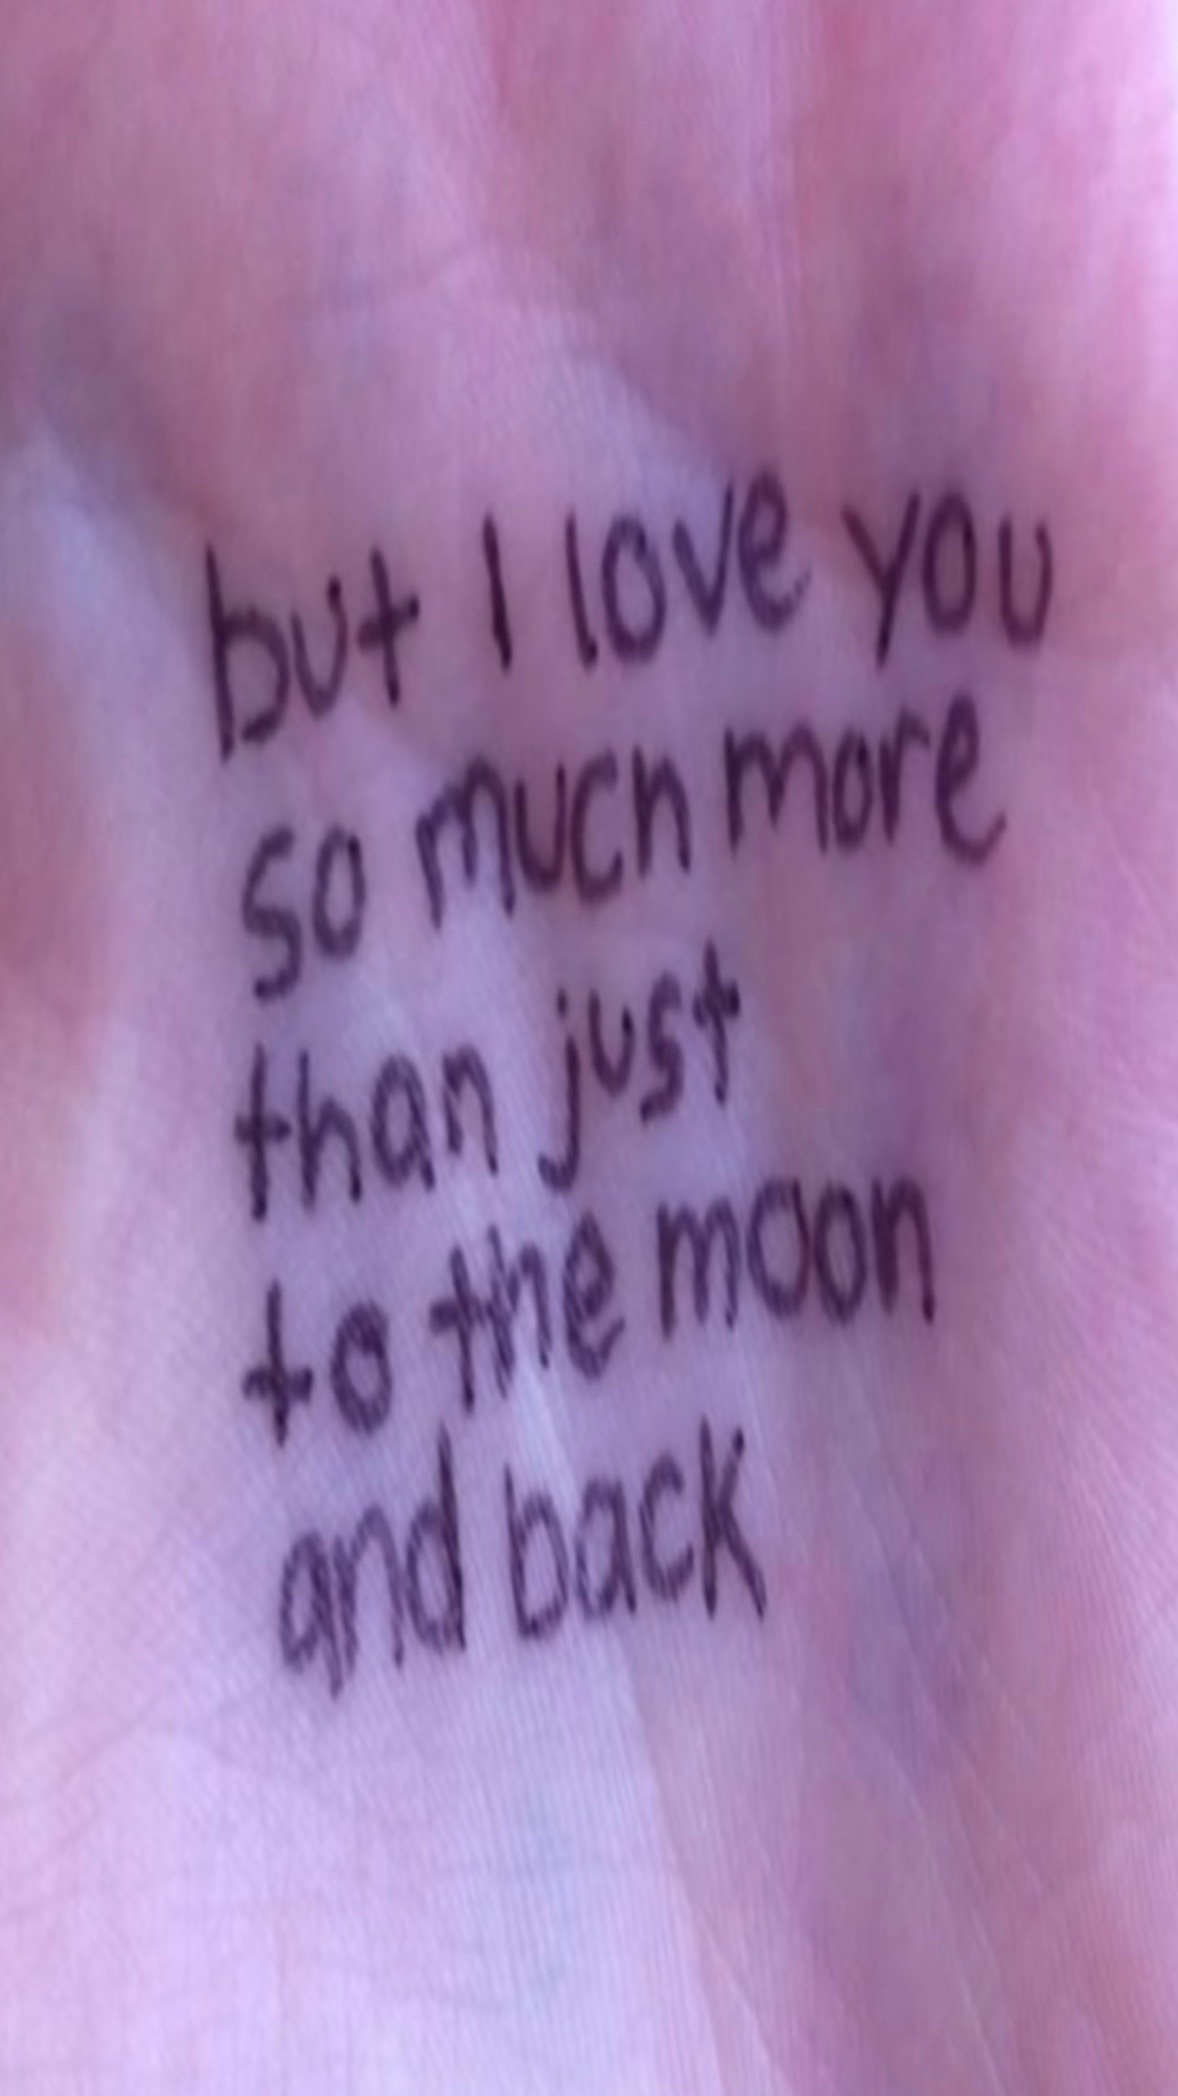 but I love you
so much more
than just
to the moon
and back